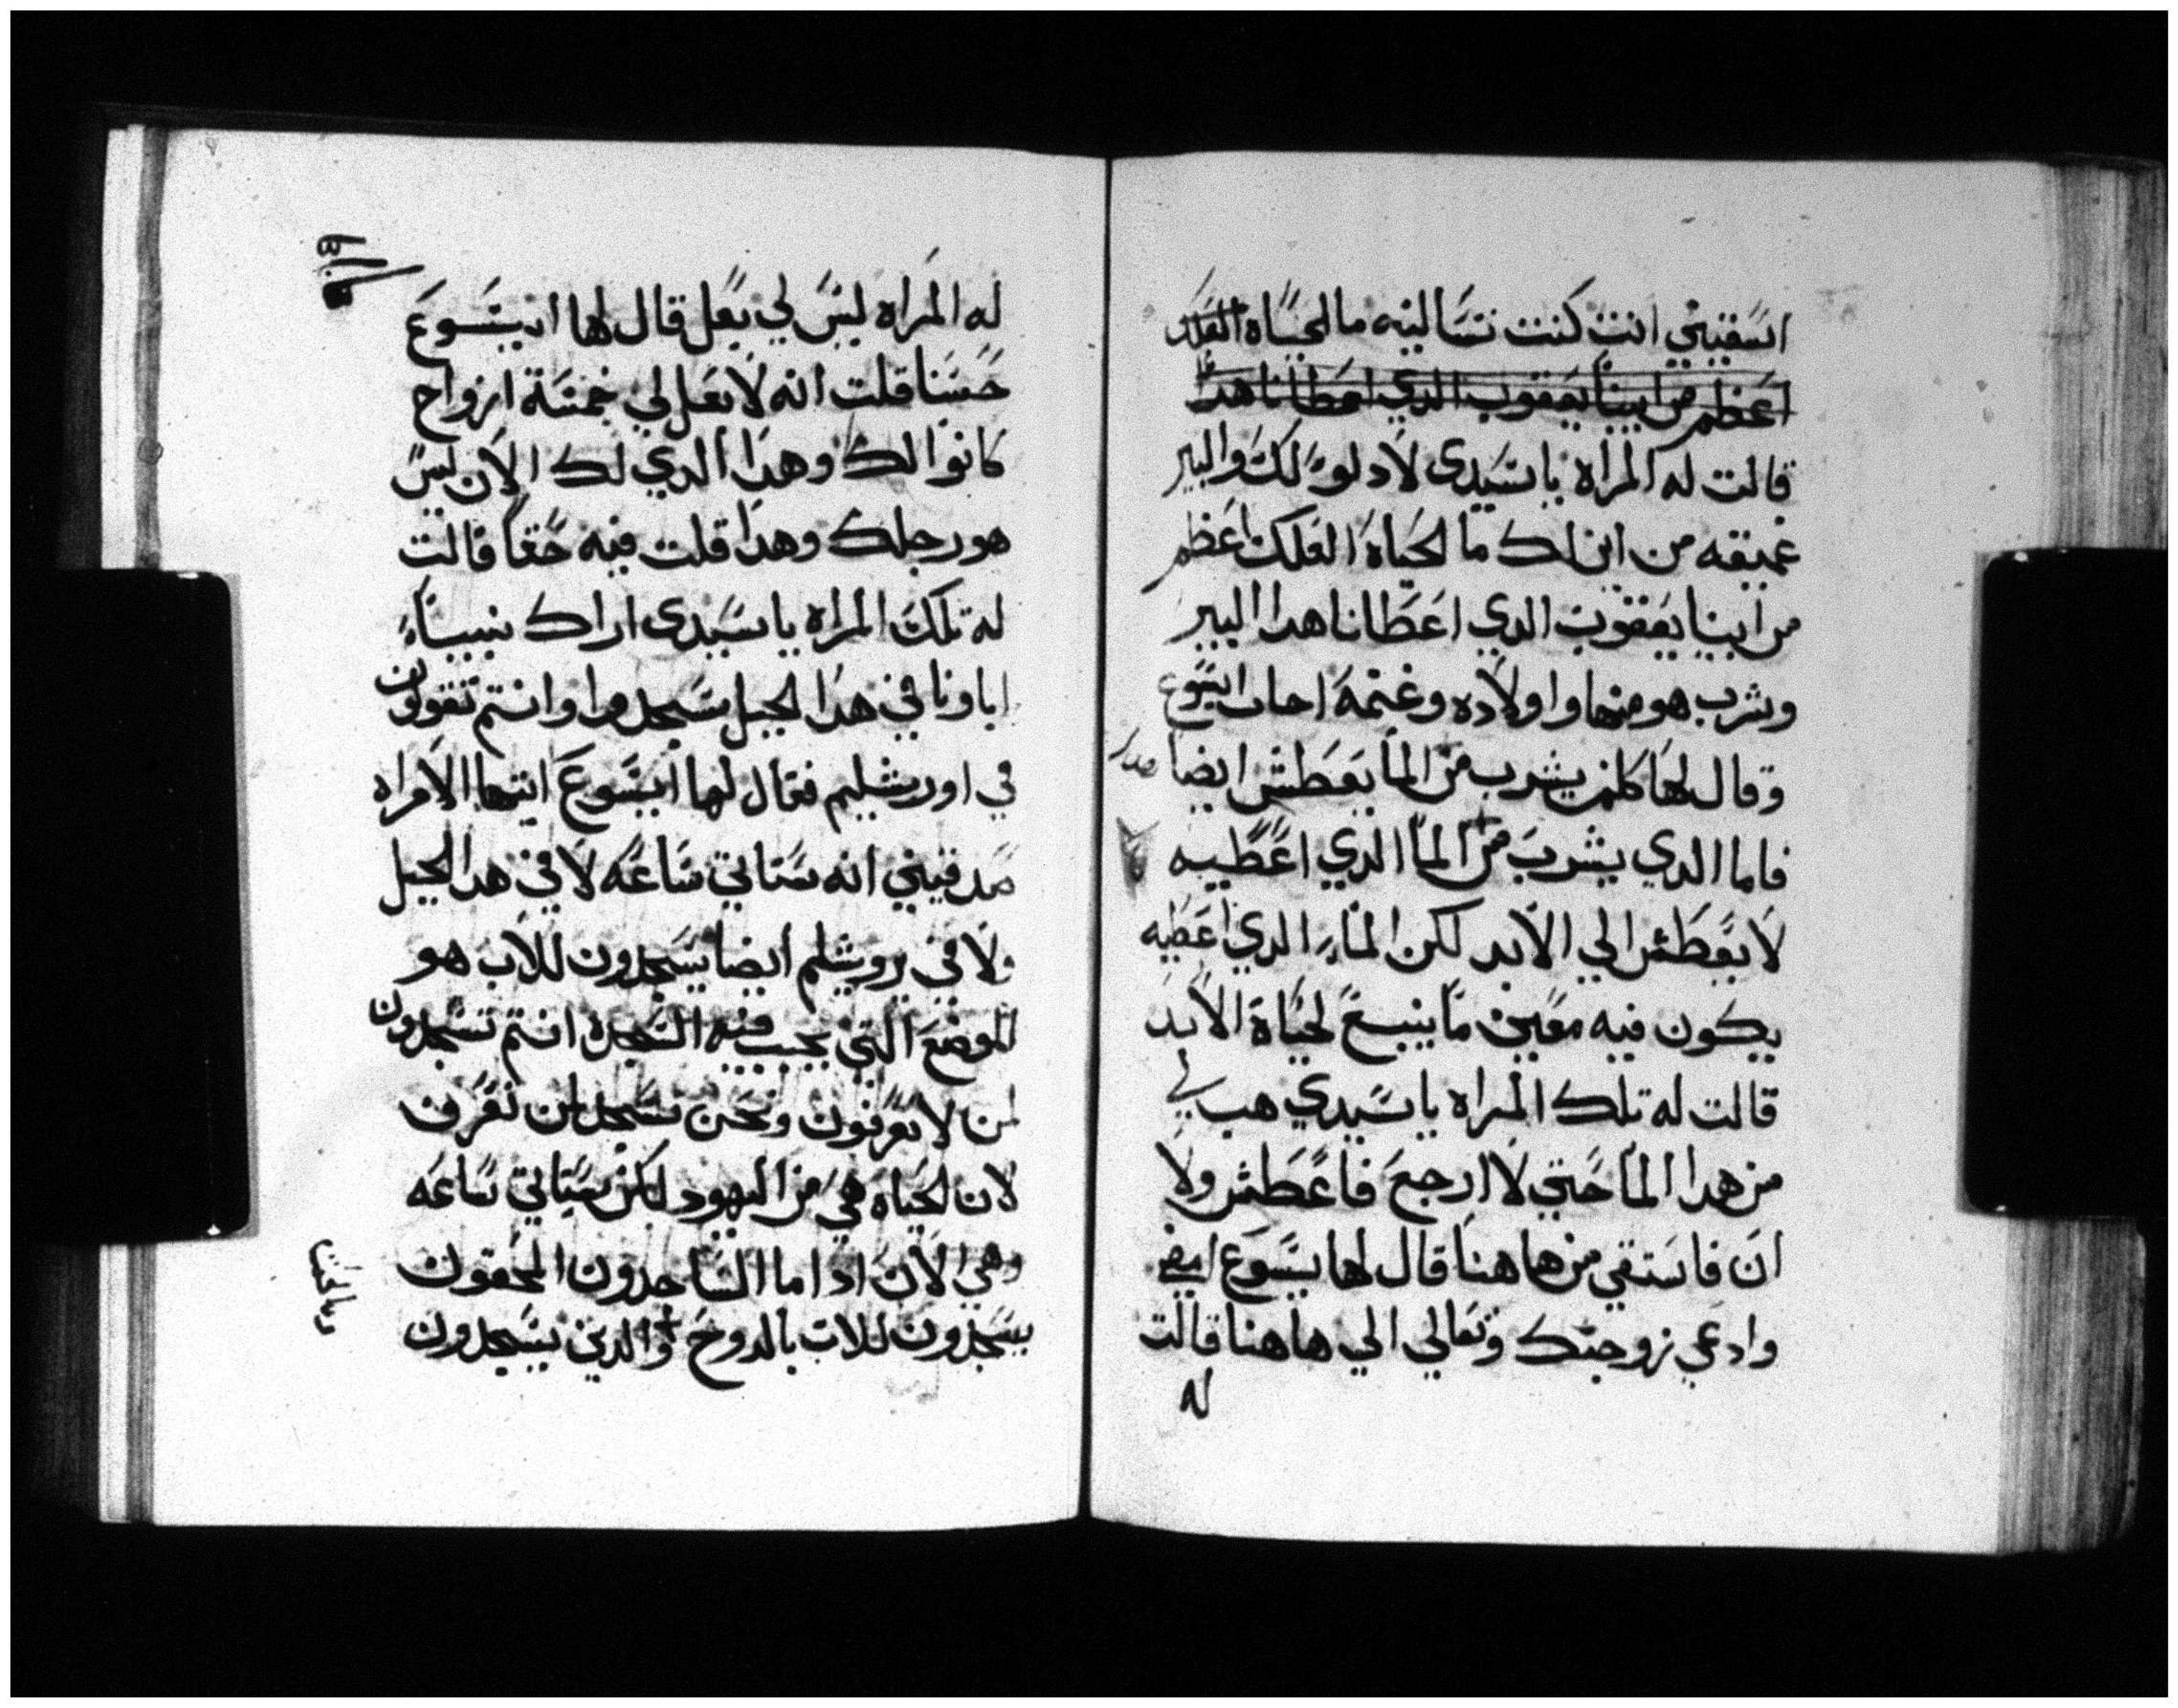 اسقيني انت كنت تسالينه ما الحياه العلك
اعظم من ابينا يعقوب الدي اعطانا هدا
قالت له المراه يا سيدي لا دلو لك والبير
عميقه من اين لك ما الحياه العلك اعظم
من ابينا يعقوب الدي اعطانا هدا البير
وشرب هو منها واولاده وغنمه اجاب ايسوع
وقال لها كلمن يشرب من الما يعطش ايضا
فاما الدي يشرب من الما الدي اعطيه
لا يعطش الي الابد لكن الماء الدي اعطيه
يكون فيه معين ما ينبع لحياة الابد
قالت له تلك المراه يا سيدي هب لي
من هدا الما حتي لا ارجع فاعطش ولا
ان فاستقي من هاهنا قال لها يسوع امضي
وادعي زوجك وتعالي الي هاهنا قالت
له
له المراه ليس لي بعل قال لها ايسوع
حسنا قلت انه لا بعل لي خمسة ازواج
كانوا لك وهدا الدي لك الان ليس
هو رجلك وهدا قلت فيه حقا قالت
له تلك المراه يا سيدي اراك نبيا
اباونا في هدا الجبل سجدوا وانتم تقولون
في اورشليم فقال لها ايسوع ايتها الامراه
صدقيني انه ستاتي ساعه لا في هدا الجبل
ولا في يروشليم ايضا يسجدون للاب هو
الموضع التي يجب فيه السجده انتم تسجدون
لمن لا تعرفون ونحن نسجد لمن نعرف
لان الحياه هي من اليهود لكن ستاتي ساعه
وهي الان ادا ما الساجدون المحقون
يسجدون للاب بالروح والدين يسجدون